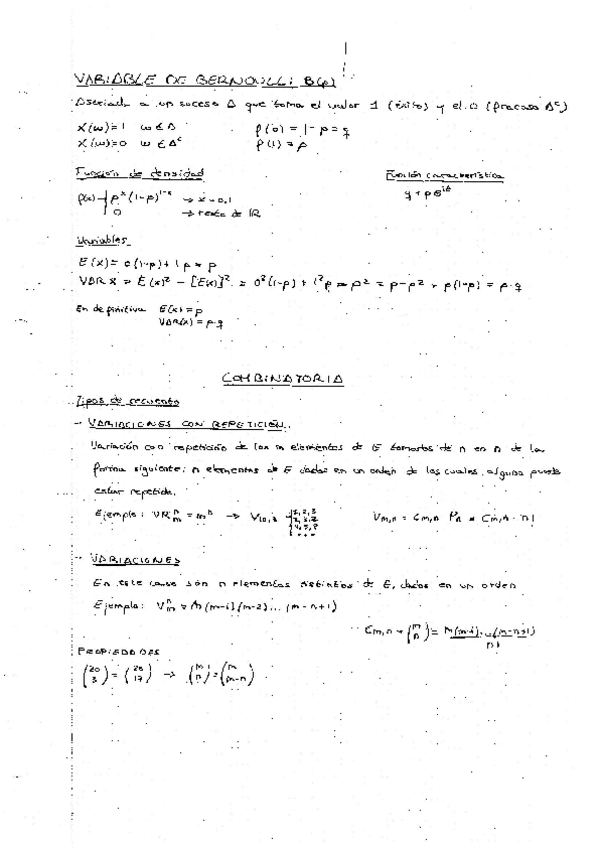 VARIABLE DE BERNOULLI B(p)
Asociada a un suceso A que toma el valor 1 (éxito) y el 0 (fracaso Aᶜ)
X(ω)=1 ω∈A p(0) = 1-p = q
X(ω)=0 ω∈Aᶜ p(1) = p
Función de densidad Función característica
p(x) { pˣ(1-p)¹⁻ˣ → x=0,1 q + p e^{it}
0 → resto de ℝ
Variables
E(X) = 0(1-p) + 1p = p
VAR X = E(x)² - [E(x)]² = 0²(1-p) + 1²p = p² = p-p² = p(1-p) = p·q
En definitiva E(x) = p
VAR(x) = p·q
COMBINATORIA
Tipos de recuento
- VARIACIONES CON REPETICIÓN.
Variación con repetición de los m elementos de E tomados de n en n de la
forma siguiente: n elementos de E dados en un orden de los cuales, alguno puede
estar repetido.
Ejemplo: VRⁿₘ = mⁿ → V₁₀,₃ Vm,n = Cm,n Pn = Cm,n · n!
- VARIACIONES
En este caso son n elementos distintos de E, dados en un orden
Ejemplo: Vⁿₘ = m(m-1)(m-2)...(m-n+1)
Cm,n = (m n) = m(m-1)...(m-n+1) / n!
PROPIEDADES
(20 3) = (20 17) → (m n) = (m m-n)